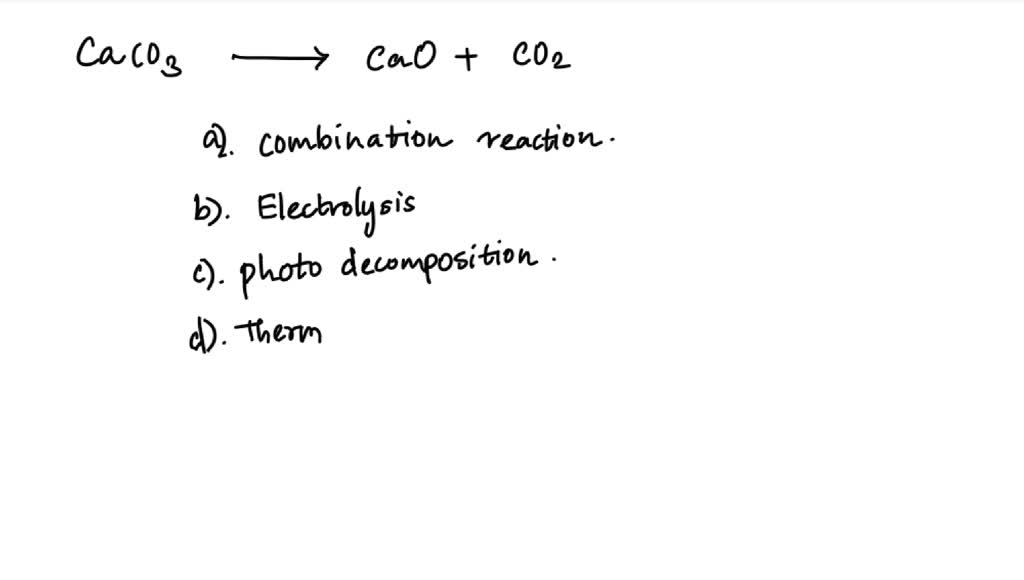 CaCO3 → CaO + CO2
a). combination reaction.
b). Electrolysis
c). photo decomposition.
d). Therm